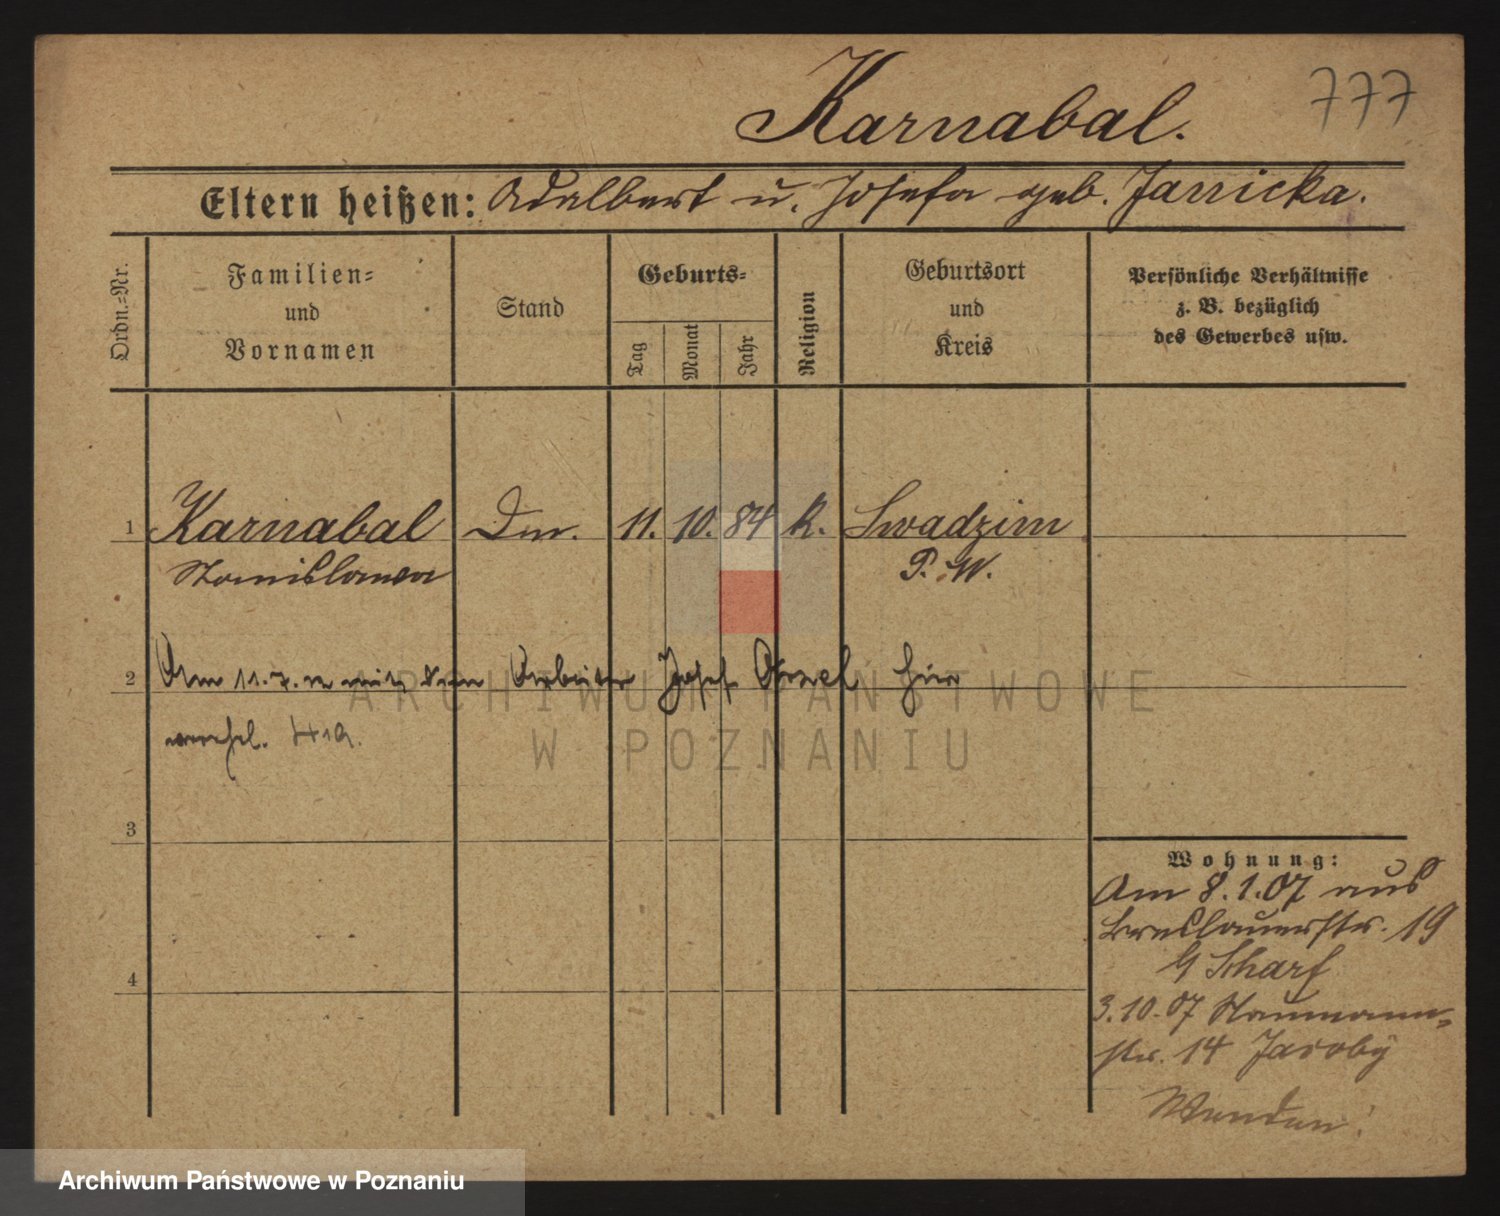 777
Karnabal.
Eltern heißen: Adalbert u. Josefa geb. Janicka.
Ordn.-Nr.
Familien-
und
Vornamen
Stand
Geburts-
Tag
Monat
Jahr
Religion
Geburtsort
und
Kreis
Persönliche Verhältnisse
z. B. bezüglich
des Gewerbes usw.
1 Karnabal Dm. 11. 10. 84 k. Swadzim
Stanislawa P. W.
2 Am 11. 7. mit dem Arbeiter Josef hier
verehel.
3
4
Wohnung:
Am 8.1.07 aus
Breslauerstr. 19
Scharf
3.10.07 Naumann-
str. 14 Jacoby
Wenden!
ARCHIWUM PAŃSTWOWE
W POZNANIU
Archiwum Państwowe w Poznaniu